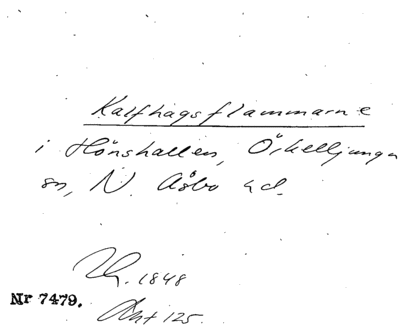 Kalfhagsflammarne
i Hönshallen, Örkelljunga
sn, N. Åsbo hd.
1848
Nr 7479.
Ant 125.